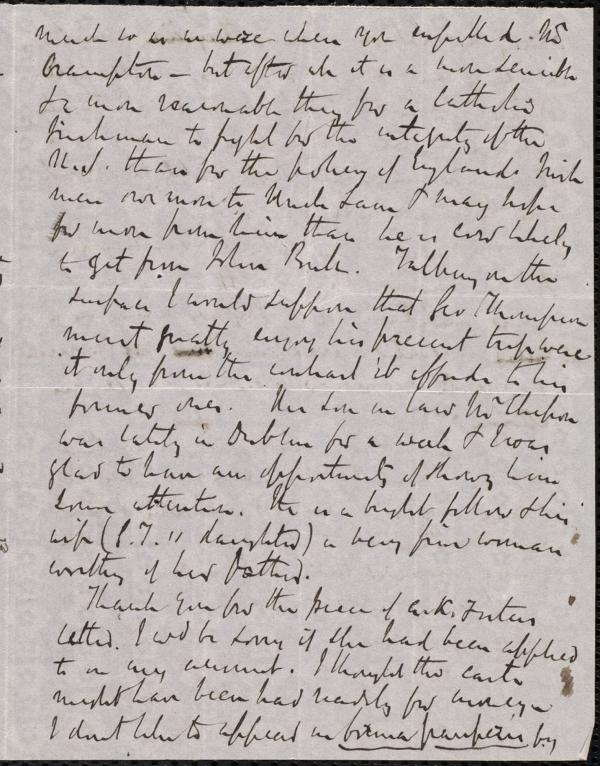 much so as we were when you expelled Mr
Crampton — but after all it is a more sensible
& a more reasonable thing for a Catholic
Irishman to fight for the integrity of the
U.S. than for the policy of England. Irish
men owe more to Uncle Sam & may hope
for more from him than he is ever likely
to get from John Bull. Talking on the
surface I would suppose that Geo Thompson
must greatly enjoy his present trip were
it only from the contrast it affords to his
former ones. His son in law Mr Chesson
was lately in Dublin for a week & I was
glad to have an opportunity of showing him
some attention. He is a bright fellow & his
wife (G.T.'s daughter) a very fine woman
worthy of her father.
Thank you for the piece of Foster's
letter. I wd be sorry if she had been applied
to on any account. I thought the
might have been had readily for money &
I don't like to appear in forma pauperis by